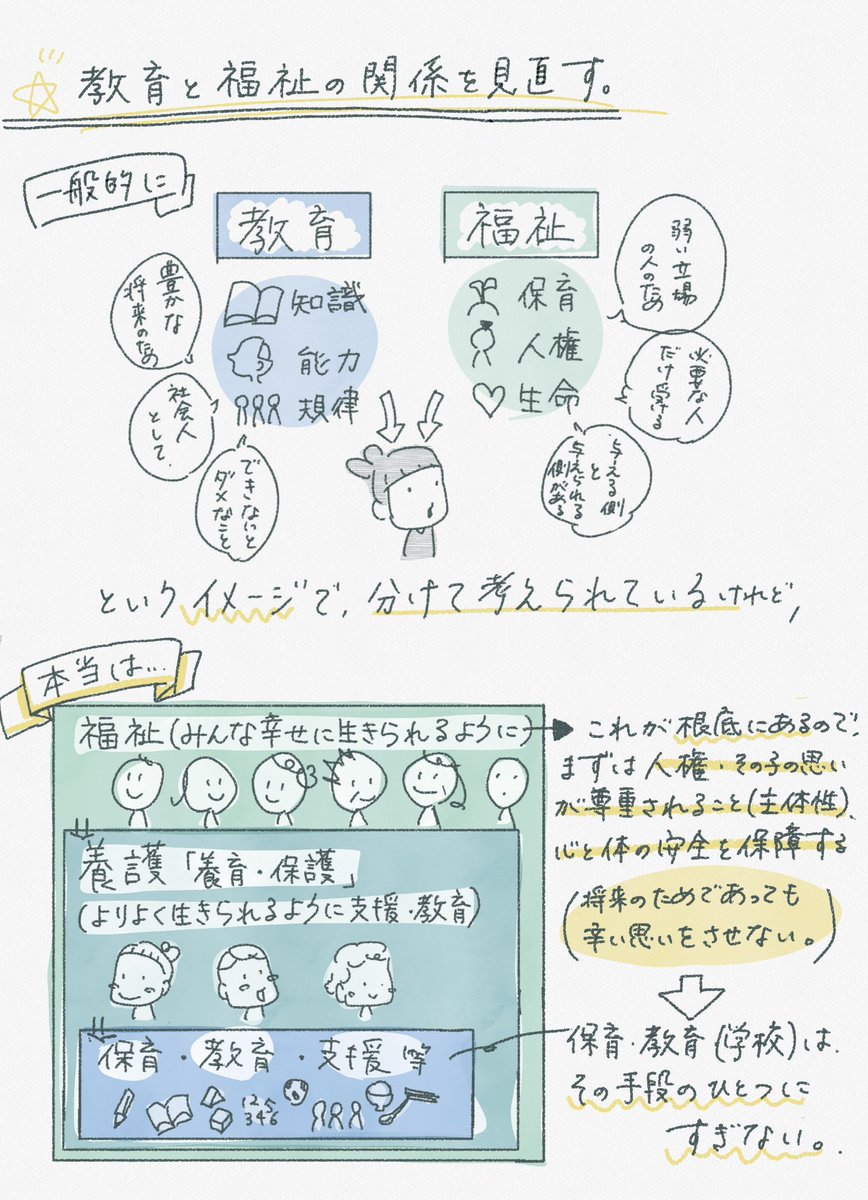 教育と福祉の関係を見直す。
一般的に
教育
知識
能力
規律
豊かな
将来のため
社会人
として
できないと
ダメなこと
福祉
保育
人権
生命
弱い立場
の人のため
必要な人
だけ受ける
与える側
と
与えられる
側がある
というイメージで、分けて考えられているけれど、
本当は…
福祉(みんな幸せに生きられるように)
養護「養育・保護」
(よりよく生きられるように支援・教育)
保育・教育・支援等
123
3456
これが根底にあるので、
まずは人権・その子の思い
が尊重されること(主体性)、
心と体の安全を保障する
(将来のためであっても
辛い思いをさせない。)
保育・教育(学校)は、
その手段のひとつに
すぎない。